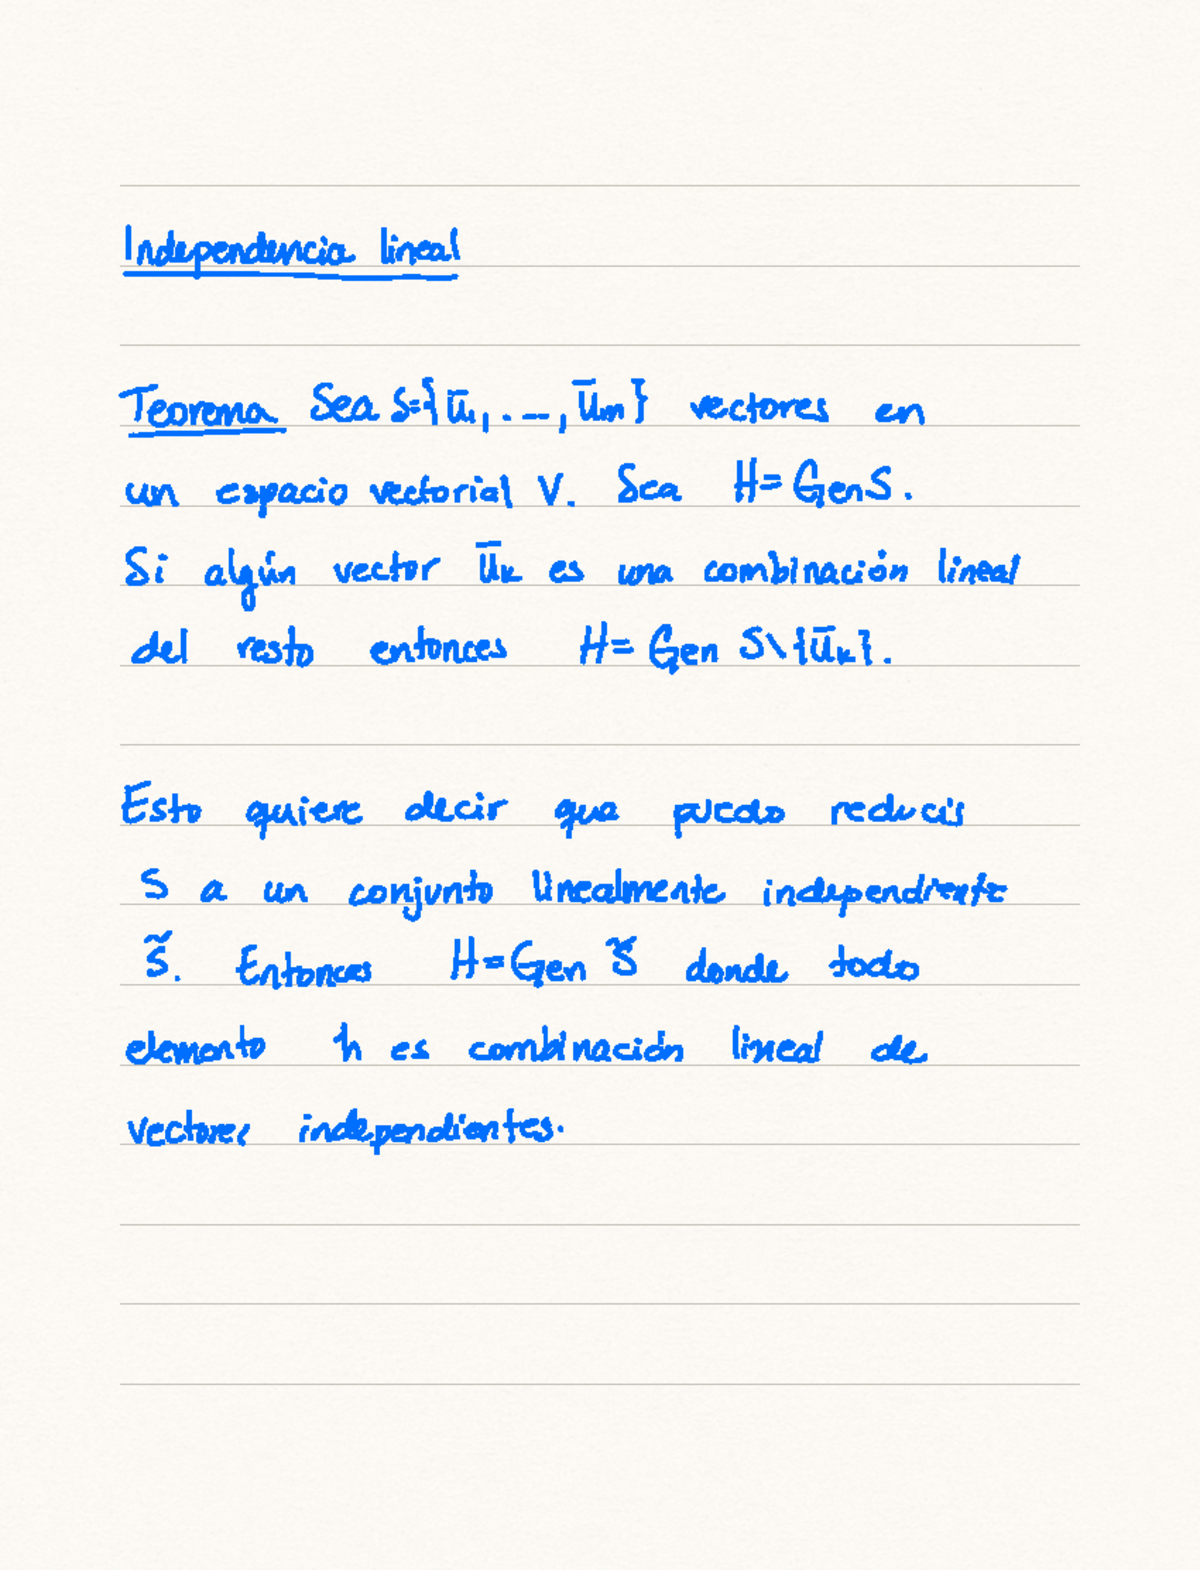 Independencia lineal
Teorema Sea S={ū₁, . . ., ūm} vectores en
un espacio vectorial V. Sea H= Gen S.
Si algún vector ūk es una combinación lineal
del resto entonces H= Gen S\{ūk}.
Esto quiere decir que puedo reducir
S a un conjunto linealmente independiente
S̃. Entonces H=Gen S̃ donde todo
elemento h es combinación lineal de
vectores independientes.